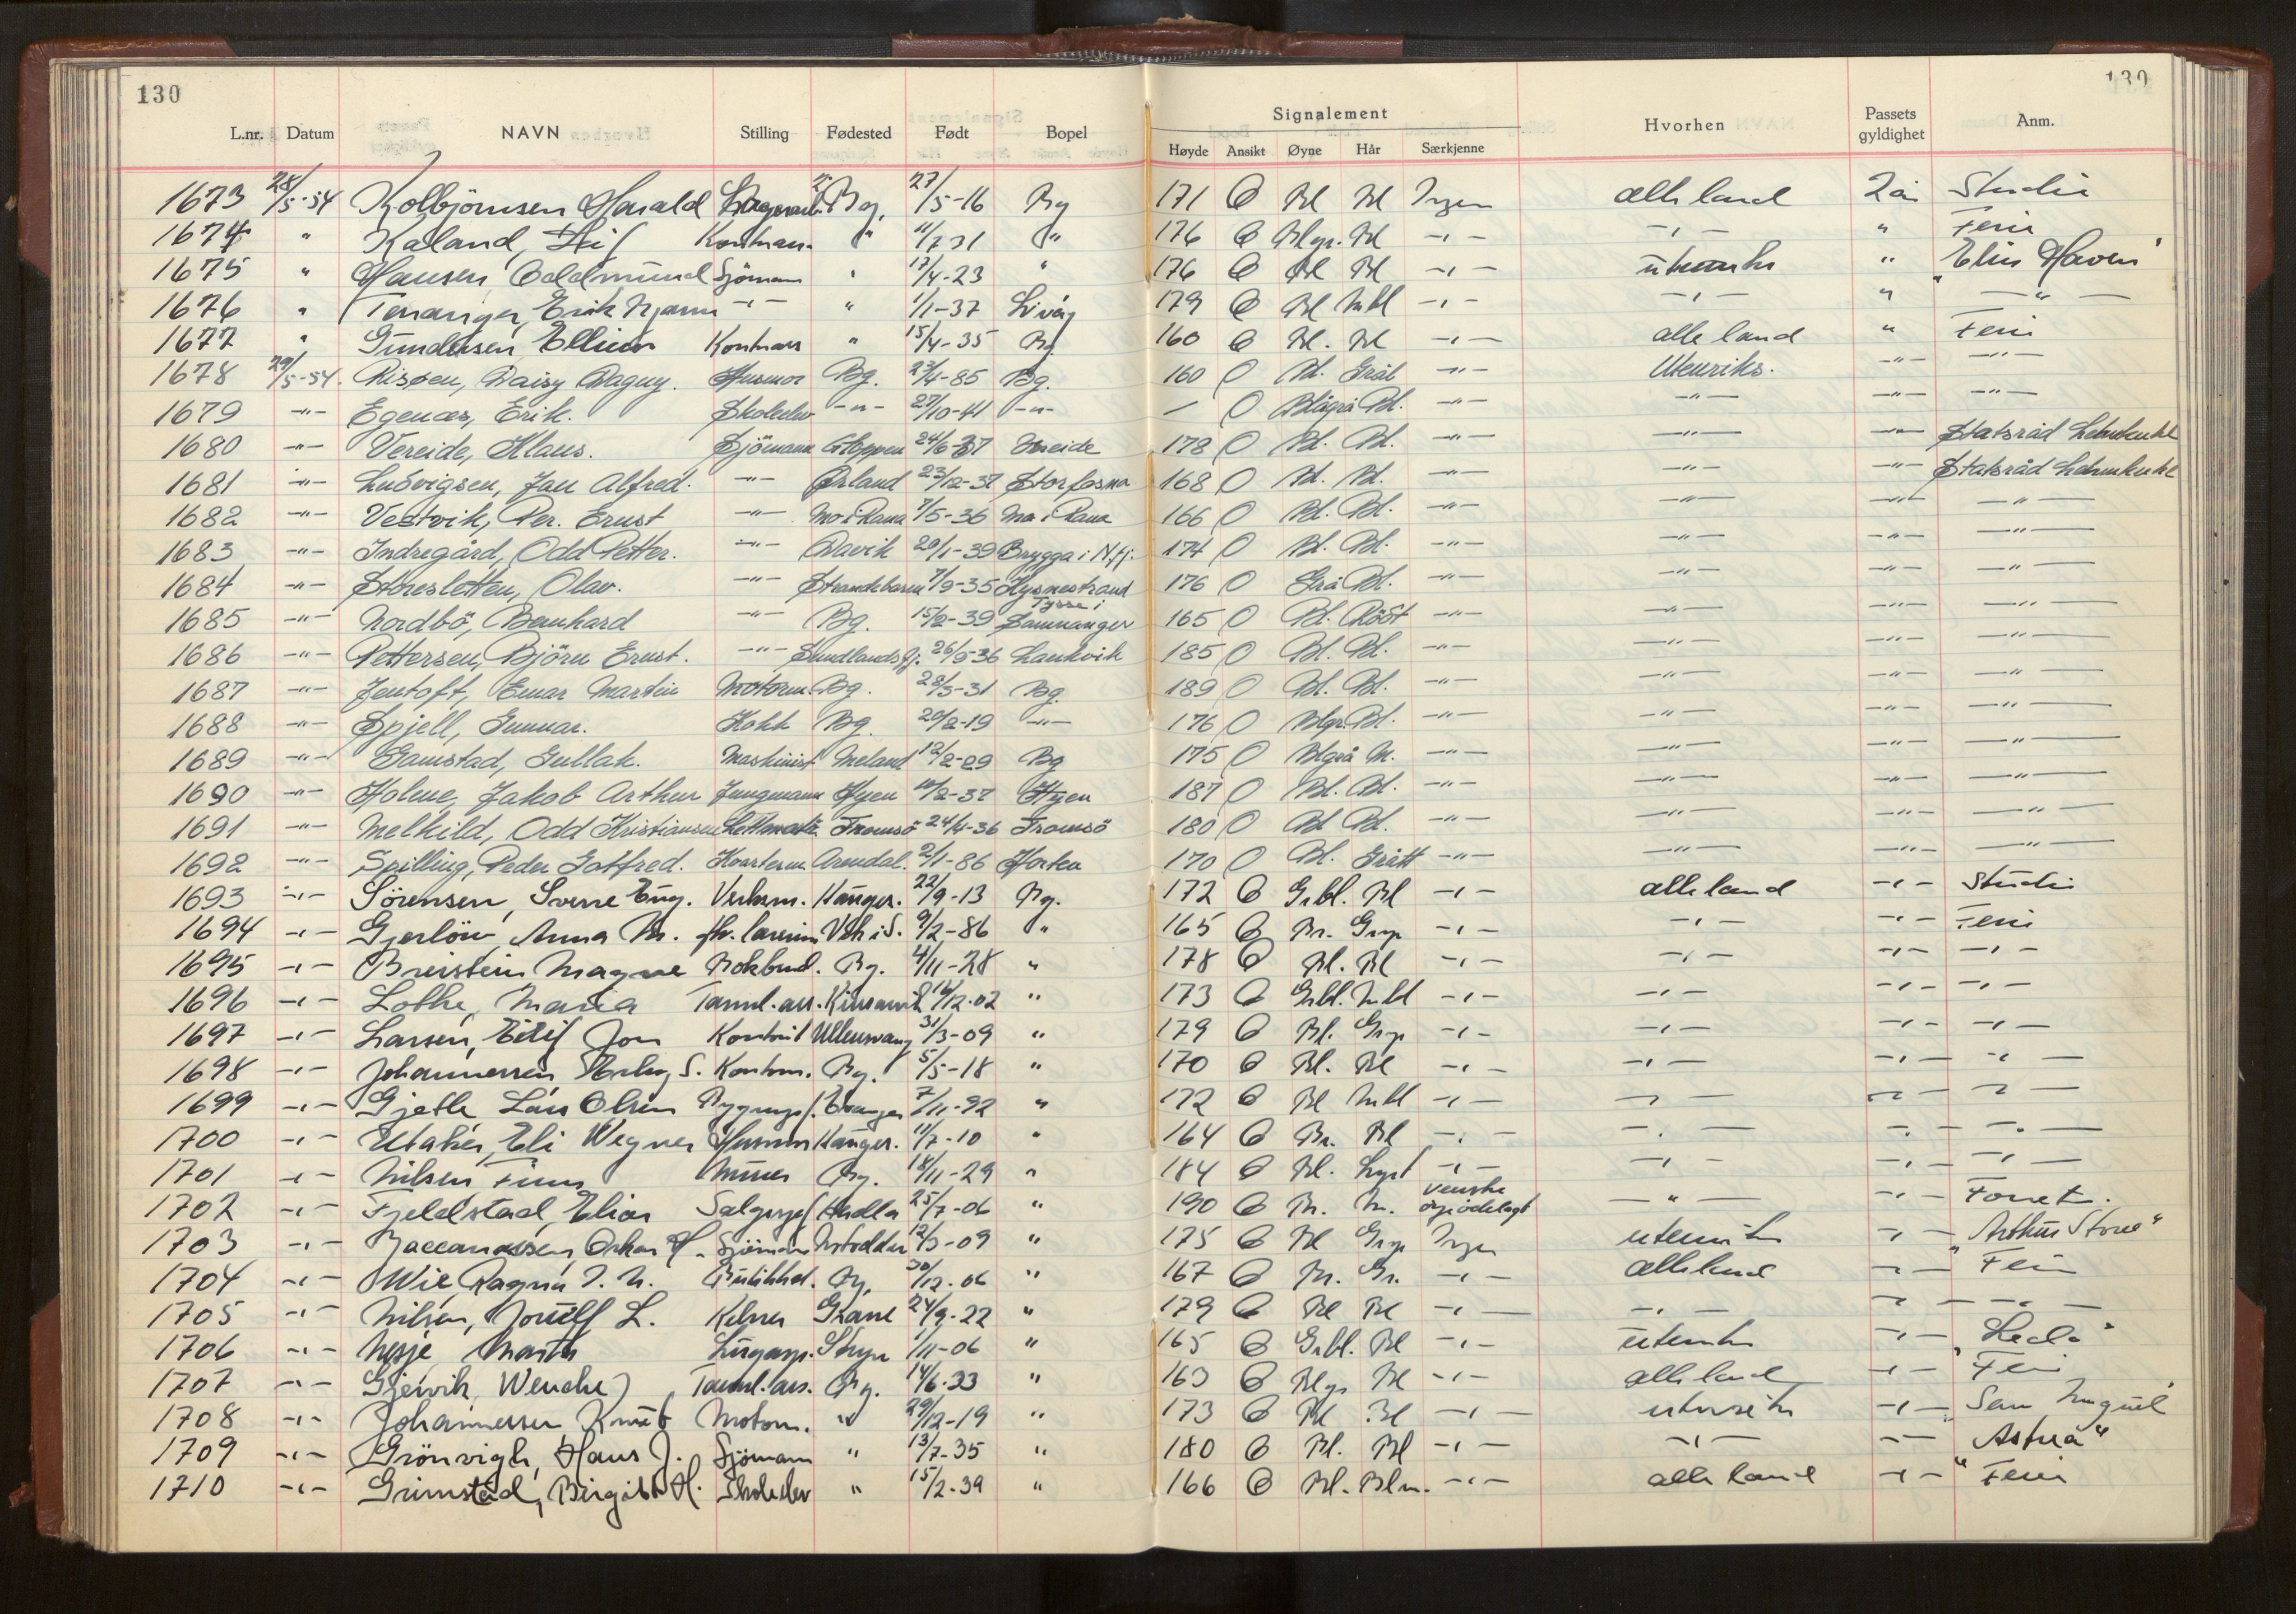 130 130
L.nr. Datum NAVN Stilling Fødested Født Bopel Signalement Hvorhen Passets gyldighet Anm.
Høyde Ansikt Øyne Hår Særkjenne
1673 28/5-54 Kolbjörnsen Harald Bg. 27/5-16 Bg 171 O Bl Bl Ingen alle land 2 år Studie
1674 " Kaland, Kontorass. " 11/7 31 " 176 O Blgr. Bl -"- -"- " Ferie
1675 " Hansen Oddmund Sjömann " 17/4-23 " 176 O Bl Bl -"- utenriks " "Elin Haven"
1676 " Teranger, Erik Bjarne -"- " 1/1-37 179 O Bl M bl -"- -"- " -"-
1677 " Gundersen Ellinor Kontorass " 15/4-35 Bg 160 O Bl. Bl -"- alle land " Ferie
1678 29/5-54. Risøen, Daisy Dagny. Husmor Bg. 23/4-85 Bg. 160 O Bl. Grål -"- Utenriks. -"- -"-
1679 -"- Egenæs, Erik. Skoleelev -"- 27/10-41 -"- — O Blågrå Bl. -"- -"- -"- -"-
1680 -"- Vereide, Klaus. Sjömann Gloppen 24/6-37 Vereide 178 O Bl. Bl. -"- -"- -"- Statsråd Lehmkuhl
1681 -"- Ludvigsen, Jan Alfred. -"- Ørland 23/12-37 Storfosna 168 O Bl. Bl. -"- -"- -"- Statsråd Lehmkuhl
1682 -"- Vestvik, Per. Ernst -"- Mo i Rana 7/5-36 Mo i Rana 166 O Bl. Bl. -"- -"- -"- -"-
1683 -"- Indregård, Odd Petter. -"- Davik 20/1-39 Brygga i N.fj. 174 O Bl. Bl. -"- -"- -"- -"-
1684 -"- Storesletten, Olav. -"- Strandebarm 7/9-35 Hysnestrand 176 O Grå Bl. -"- -"- -"- -"-
1685 -"- Nordbö, Bernhard -"- Bg. 15/2-39 Tysse i Samnanger 165 O Bl. Rödt -"- -"- -"- -"-
1686 -"- Pettersen, Björn Ernst. -"- Sundlandsfj. 26/5-36 Laukvik 185 O Bl. Bl. -"- -"- -"- -"-
1687 -"- Jentoft, Einar Martin Motorm. Bg. 28/3-31 Bg. 189 O Bl. Bl. -"- -"- -"- -"-
1688 -"- Spjell, Gunnar. Kokk Bg. 20/2-19 -"- 176 O Blgr. Bl. -"- -"- -"- -"-
1689 -"- Gamstad, Gullak. Maskinist Meland 12/2-29 Bg 175 O Blgrå M. -"- -"- -"- -"-
1690 -"- Holene, Jakob Arthur Jungmann Hyen 10/2-37 Hyen 187 O Bl. Bl. -"- -"- -"- -"-
1691 -"- Melkild, Odd Kristiansen Lettmatr. Tromsö 24/4-36 Tromsö 180 O Bl Bl. -"- -"- -"- -"-
1692 -"- Spilling, Peder Gotfred. Kvarterm. Arendal. 2/1-86 Horten 170 O Bl. Grått -"- -"- -"- -"-
1693 -"- Sörensen, Sverre Eug. Verksm. Hauges. 22/9-13 Bg. 172 O Grbl. Bl -"- alle land -"- Studie
1694 -"- Gjerlöw, Anna M. fhv. lærerin 9/2-86 " 165 O Br. Grsp -"- -"- -"- Ferie
1695 -"- Breistein Magne Bokbind. Bg. 4/11-28 " 178 O Bl. Bl -"- -"- -"- -"-
1696 -"- Lothe, Maria Tannl.ass. Kinsarvik 16/12-02 " 173 O Grbl. M bl -"- -"- -"- -"-
1697 -"- Larsen, Eilif Jon Ullensvang 31/3-09 " 179 O Bl. Grsp -"- -"- -"- -"-
1698 -"- Johannessen, S. Kontorm. Bg. 5/5-18 " 170 O Bl. Bl -"- -"- -"- -"-
1699 -"- Gjetle Lars Olsen Evanger 7/11-92 " 172 O Bl M bl -"- -"- -"- -"-
1700 -"- Utaker, Eli Wegner Husmor Hauges. 11/7-10 " 164 O Br. Bl -"- -"- -"- -"-
1701 -"- Nilsen Finn Murer Bg. 18/11-29 " 184 O Bl. Lyst -"- -"- -"- -"-
1702 -"- Fjeldstad, Elias Salgssjef 25/7-06 " 190 O Br. M. venstre öye ödelagt -"- -"- Forret.
1703 -"- Zaccariassen, Oskar H. Sjömann Notodden 12/3-09 " 175 O Bl Grsp Ingen utenriks -"- "Arthur Stove"
1704 -"- Wie, Ragna Butikkd. Bg. 30/12-06 " 167 O Br. Br. -"- alle land -"- Ferie
1705 -"- Nilsen, L. Kelner Grane 24/9-22 " 179 O Bl Bl -"- -"- -"- -"-
1706 -"- Nesje Lugarp. Stryn 1/11-06 " 165 O Grbl. Bl -"- utenriks -"- "Leda"
1707 -"- Gjervik, Wenche Tannl.ass. Bg. 14/6-33 " 163 O Blgr Bl -"- alle land -"- Ferie
1708 -"- Johannessen Knut Motorm. " 29/12-19 " 173 O Bl Bl -"- utenriks -"- "San Miguel"
1709 -"- Grönvigh, Hans J. Sjömann " 13/7-35 " 180 O Bl. Bl -"- -"- -"- "Astrea"
1710 -"- Grimstad, Birgitte H. Skoleelev " 15/2-39 " 166 O Bl. Bln. -"- alle land -"- Ferie